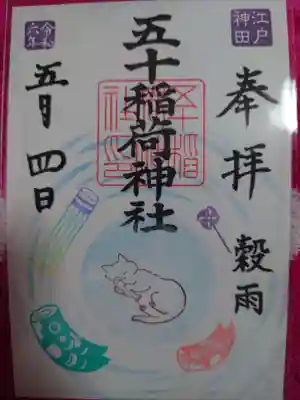 江戸
神田
奉拝
穀雨
五十稲荷神社
令和
六年
五月四日